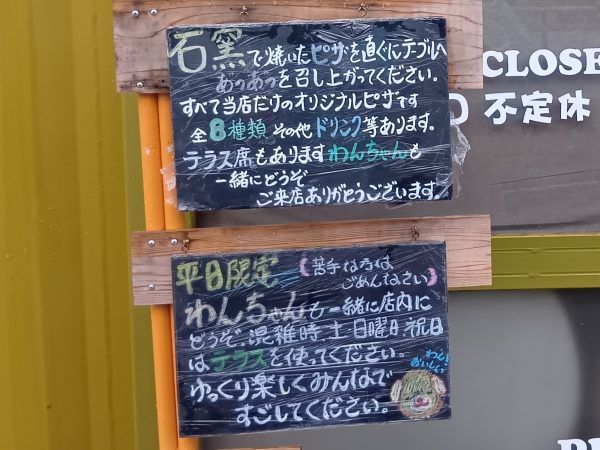 石窯で焼いたピザを直ぐにテブルへ
あつあつを召し上がってください。
すべて当店だけのオリジナルピザです
全8種類 その他 ドリンク等あります。
テラス席もあります わんちゃんも
一緒にどうぞ
ご来店ありがとうございます
CLOSE
不定休
平日限定(苦手な方はごめんなさい)
わんちゃんも一緒に店内に
どうぞ。混雑時、土日曜日、祝日
はテラスを使ってください。
ゆっくり楽しくみんなで
すごしてください。
わん!
おいしい